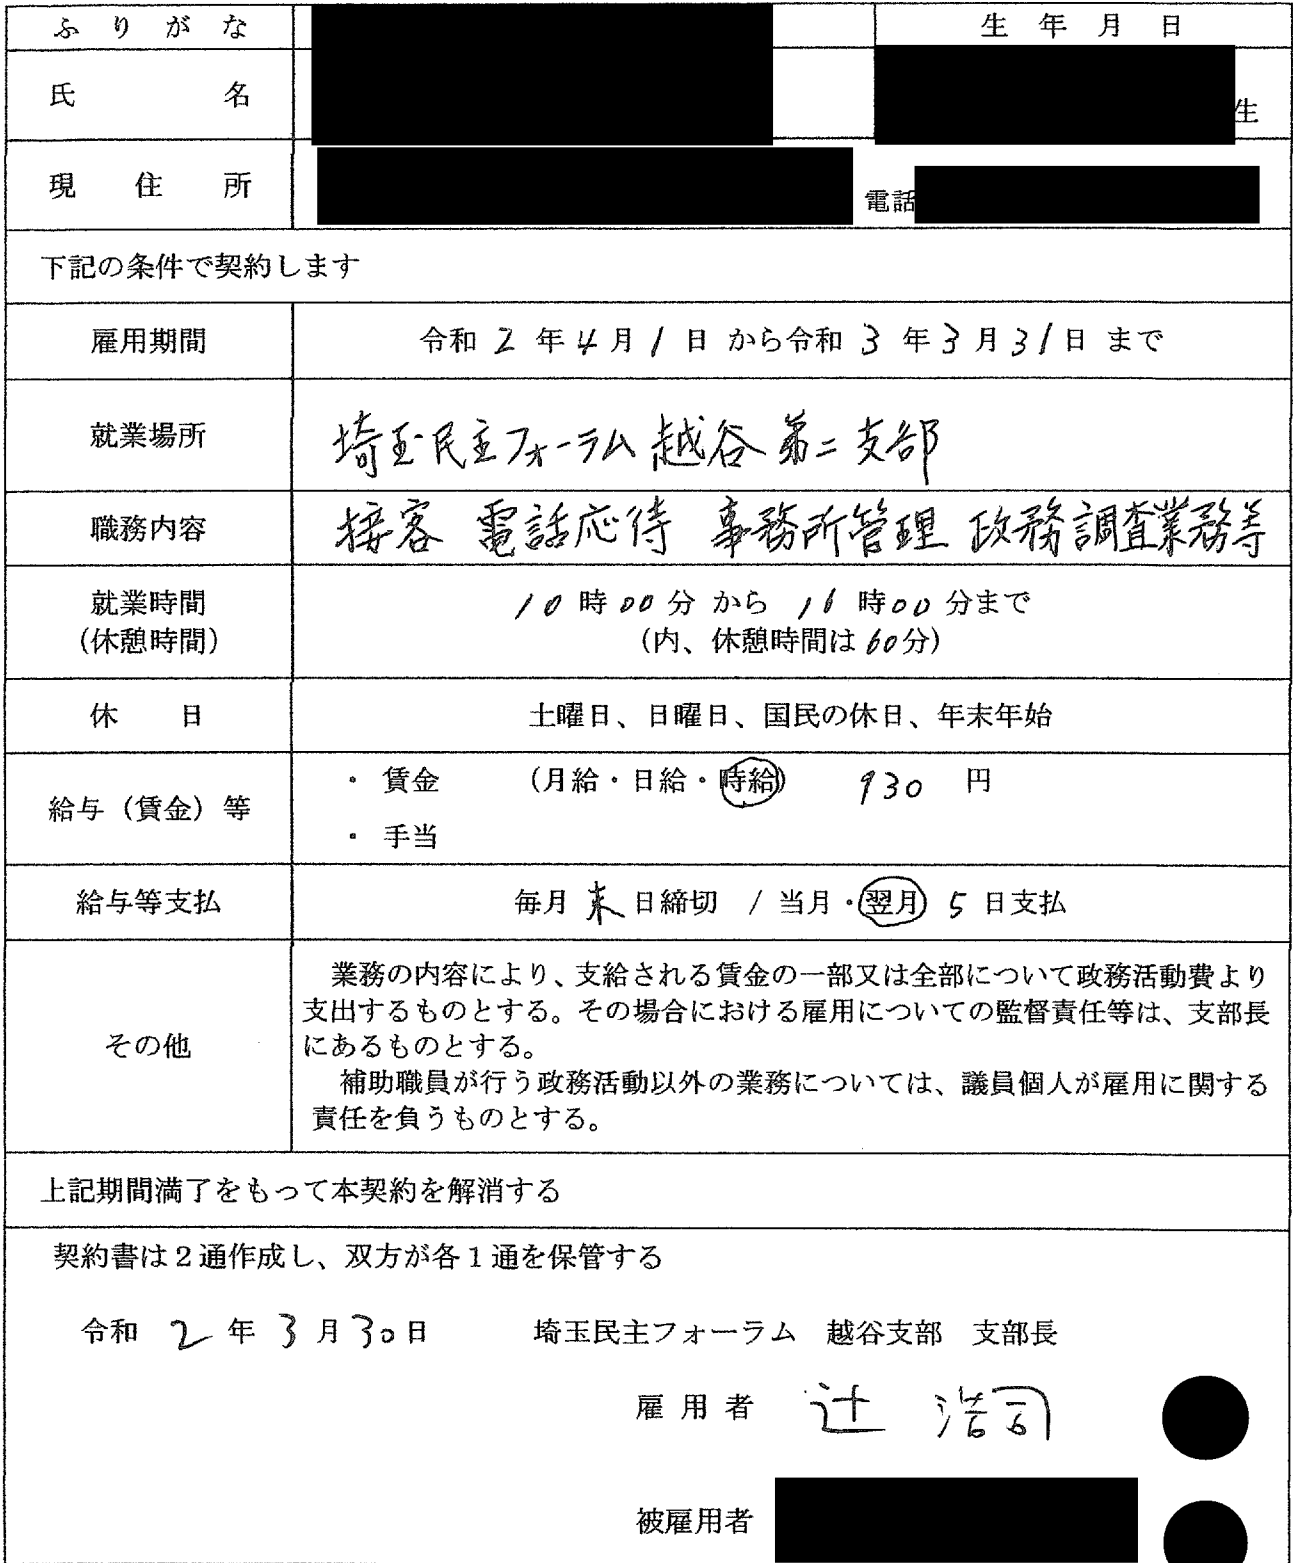 ふりがな
生年月日
氏名
生
現住所
電話
下記の条件で契約します
雇用期間
令和 2 年 4 月 1 日 から令和 3 年 3 月 31 日 まで
就業場所
埼玉民主フォーラム 越谷第二支部
職務内容
接客 電話応待 事務所管理 政務調査業務等
就業時間
(休憩時間)
10 時 00 分 から 16 時 00 分まで
(内、休憩時間は 60 分)
休日
土曜日、日曜日、国民の休日、年末年始
給与（賃金）等
・ 賃金 (月給・日給・時給) 930 円
・ 手当
給与等支払
毎月 末 日締切 / 当月・翌月 5 日支払
その他
業務の内容により、支給される賃金の一部又は全部について政務活動費より
支出するものとする。その場合における雇用についての監督責任等は、支部長
にあるものとする。
補助職員が行う政務活動以外の業務については、議員個人が雇用に関する
責任を負うものとする。
上記期間満了をもって本契約を解消する
契約書は２通作成し、双方が各１通を保管する
令和 2 年 3 月 30 日 埼玉民主フォーラム 越谷支部 支部長
雇用者 辻 浩司
被雇用者